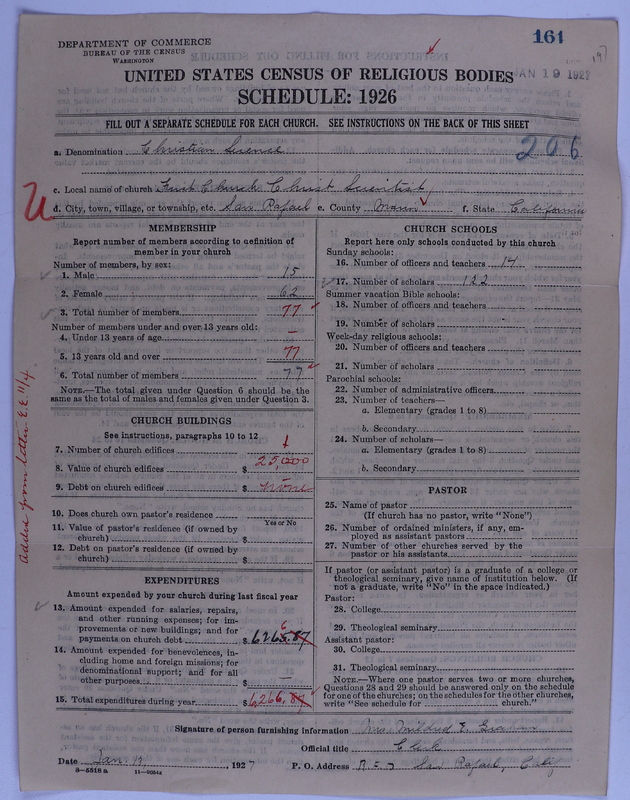 DEPARTMENT OF COMMERCE
BUREAU OF THE CENSUS
WASHINGTON
161
JAN 19 1927
UNITED STATES CENSUS OF RELIGIOUS BODIES
SCHEDULE: 1926
FILL OUT A SEPARATE SCHEDULE FOR EACH CHURCH. SEE INSTRUCTIONS ON THE BACK OF THIS SHEET
a. Denomination Christian Science
206
c. Local name of church First Church Christ Scientist
d. City, town, village, or township, etc. San Rafael e. County Marin f. State California
MEMBERSHIP
Report number of members according to definition of
member in your church
Number of members, by sex:
1. Male 15
2. Female 62
3. Total number of members 77
Number of members under and over 13 years old:
4. Under 13 years of age –
5. 13 years old and over 77
6. Total number of members 77
NOTE.—The total given under Question 6 should be the
same as the total of males and females given under Question 3.
added from letter E.E. 11/4
CHURCH BUILDINGS
See instructions, paragraphs 10 to 12
7. Number of church edifices 1
8. Value of church edifices $ 25,000
9. Debt on church edifices $ none
10. Does church own pastor's residence
Yes or No
11. Value of pastor's residence (if owned by
church) $
12. Debt on pastor's residence (if owned by
church) $
EXPENDITURES
Amount expended by your church during last fiscal year
13. Amount expended for salaries, repairs,
and other running expenses; for im-
provements or new buildings; and for
payments on church debt $ 6265.87
6
14. Amount expended for benevolences, in-
cluding home and foreign missions; for
denominational support; and for all
other purposes $ –
15. Total expenditures during year $ 6,266.87
CHURCH SCHOOLS
Report here only schools conducted by this church
Sunday schools:
16. Number of officers and teachers 14
17. Number of scholars 122
Summer vacation Bible schools:
18. Number of officers and teachers
19. Number of scholars
Week-day religious schools:
20. Number of officers and teachers
21. Number of scholars
Parochial schools:
22. Number of administrative officers
23. Number of teachers—
a. Elementary (grades 1 to 8)
b. Secondary
24. Number of scholars—
a. Elementary (grades 1 to 8)
b. Secondary
PASTOR
25. Name of pastor
(If church has no pastor, write "None")
26. Number of ordained ministers, if any, em-
ployed as assistant pastors
27. Number of other churches served by the
pastor or his assistants
If pastor (or assistant pastor) is a graduate of a college or
theological seminary, give name of institution below. (If
not a graduate, write "No" in the space indicated.)
Pastor:
28. College
29. Theological seminary
Assistant pastor:
30. College
31. Theological seminary
NOTE.—Where one pastor serves two or more churches,
Questions 28 and 29 should be answered only on the schedule
for one of the churches; on the schedules for the other churches,
write "See schedule for church."
Signature of person furnishing information Mrs. Mildred E.
Official title Clerk
Date Jan. 17, 1927 P. O. Address San Rafael, Calif
8—5518 a 11—9054a